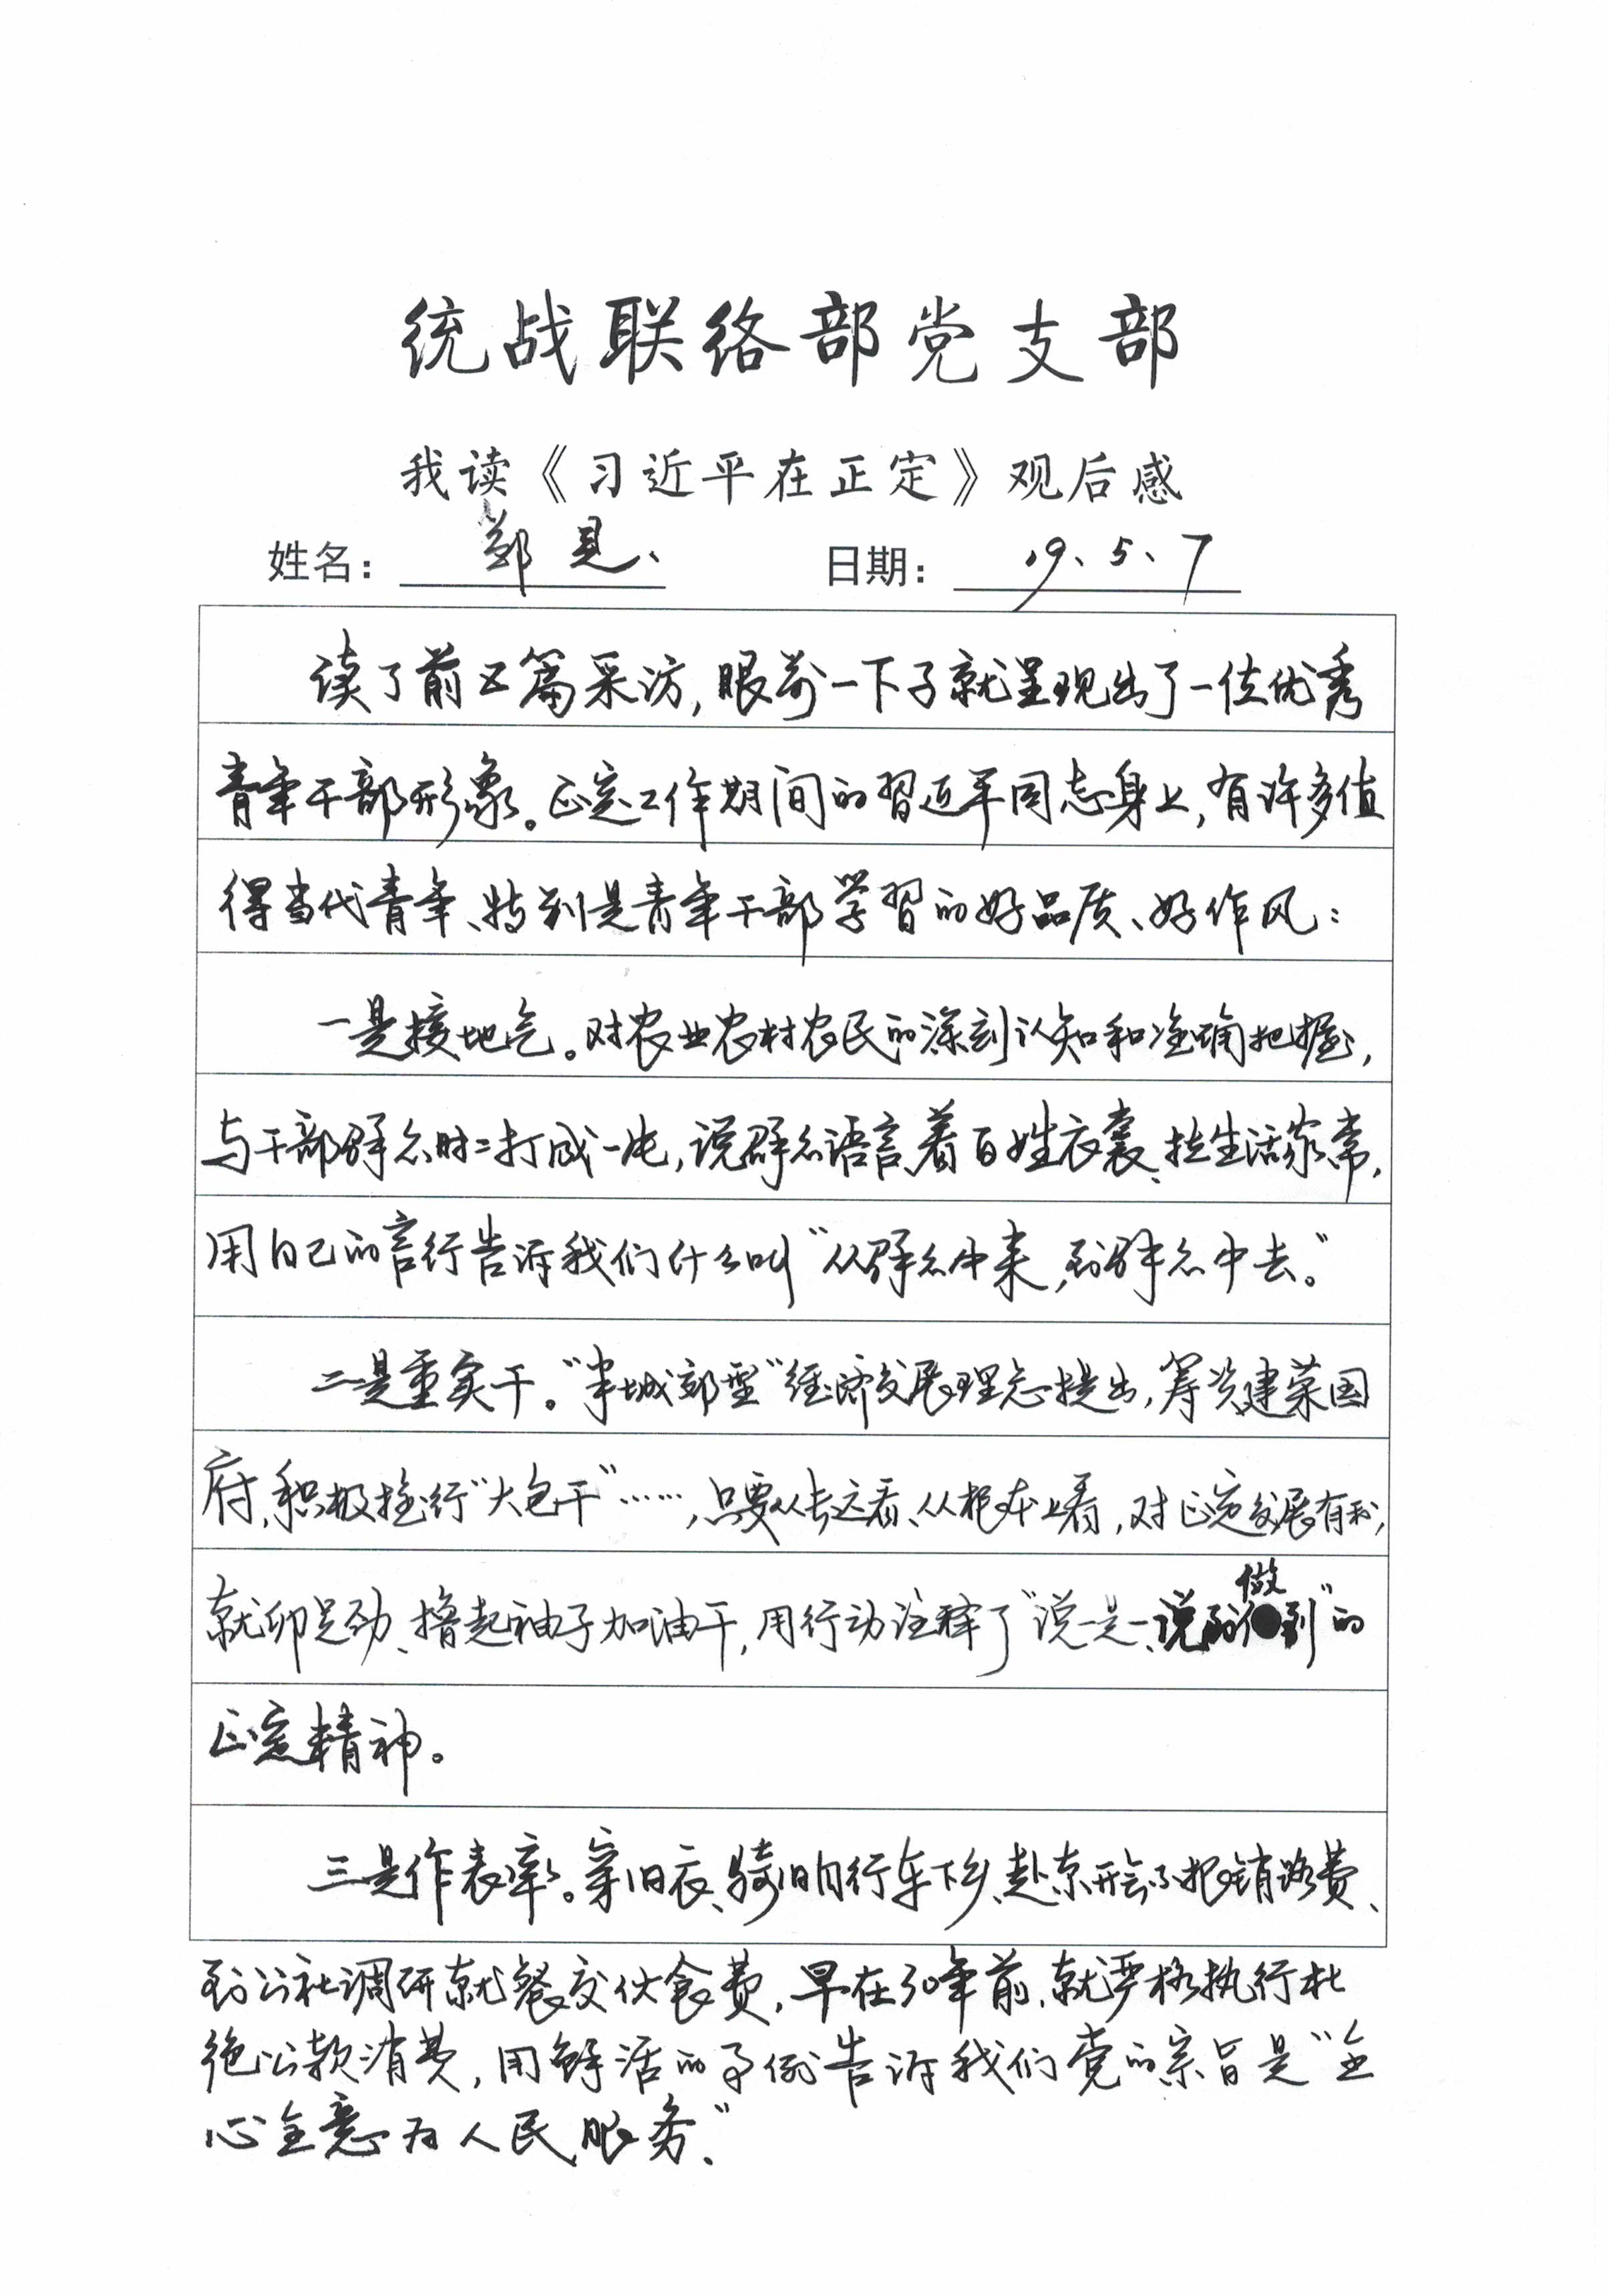 统战联络部党支部
我读《习近平在正定》观后感
姓名： 郭昆、 日期： 19、5、7
读了前五篇采访，眼前一下子就呈现出了一位优秀
青年干部形象。正定工作期间的習近平同志身上，有许多值
得当代青年、特别是青年干部学習的好品质、好作风：
一是接地气。对农业农村农民的深刻认知和准确把握，
与干部群众时时打成一片，说群众语言、着百姓衣裳、拉生活家常，
用自己的言行告诉我们什么叫“从群众中来，到群众中去。”
二是重实干。“半城郊型”经济发展理念提出，筹资建荣国
府、积极推行“大包干”……，只要从长远看、从根本上看，对正定发展有利，
就卯足劲、撸起袖子加油干，用行动注释了“说一是一、说到做到”的
正定精神。
三是作表率。穿旧衣、骑旧自行车下乡、赴京开会不报销路费、
到公社调研就餐交伙食费，早在30年前，就严格执行杜
绝公款消费，用鲜活的事例告诉我们党的宗旨是“全
心全意为人民服务”、